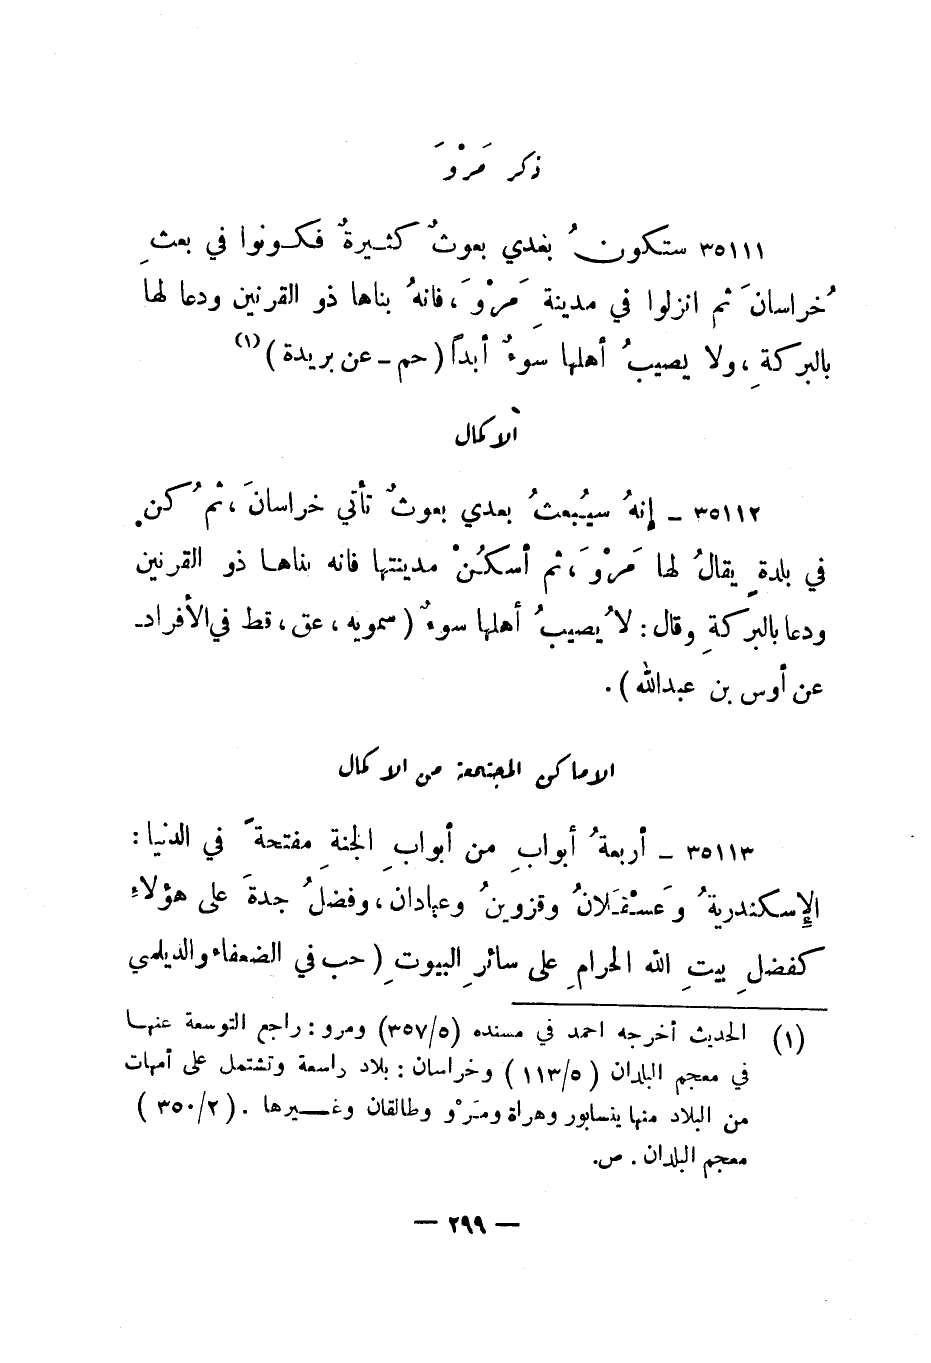 ذكر مَرْوَ
٣٥١١١ ستكونُ بعدي بعوثٌ كثيرةٌ فكونوا في بعثِ
خُراسانَ ثم انزلوا في مدينةِ مَرْوَ، فانهُ بناها ذو القرنين ودعا لها
بالبركةِ، ولا يصيبُ أهلها سوءٌ أبداً (حم - عن بريدة)(١)
الاكمال
٣٥١١٢ - إنهُ سيُبعثُ بعدي بعوثٌ تأتي خراسانَ، ثم كُن
في بلدةٍ يقالُ لها مَرْوَ، ثم أسكُنْ مدينتها فانه بناها ذو القرنين
ودعا بالبركةِ وقال: لا يُصيبُ أهلها سوءٌ (سمويه، عق، قط في الأفراد-
عن أوس بن عبدالله).
الاماكن المجتمعة من الاكمال
٣٥١١٣ - أربعةُ أبوابٍ من أبوابِ الجنةِ مفتحةً في الدنيا:
الإسكندريةُ وعَسْقَلانُ وقزوينُ وعبادان، وفضلُ جدةَ على هؤلاءِ
كفضلِ بيتِ الله الحرامِ على سائرِ البيوتِ (حب في الضعفاء والديلمي
(١) الحديث أخرجه احمد في مسنده (٣٥٧/٥) ومرو: راجع التوسعة عنها
في معجم البلدان (١١٣/٥) وخراسان: بلاد راسعة وتشتمل على أمهات
من البلاد منها ينسابور وهراة ومَرْو وطالقان وغيرها. (٣٥٠/٢)
معجم البلدان. ص.
— ٢٩٩ —